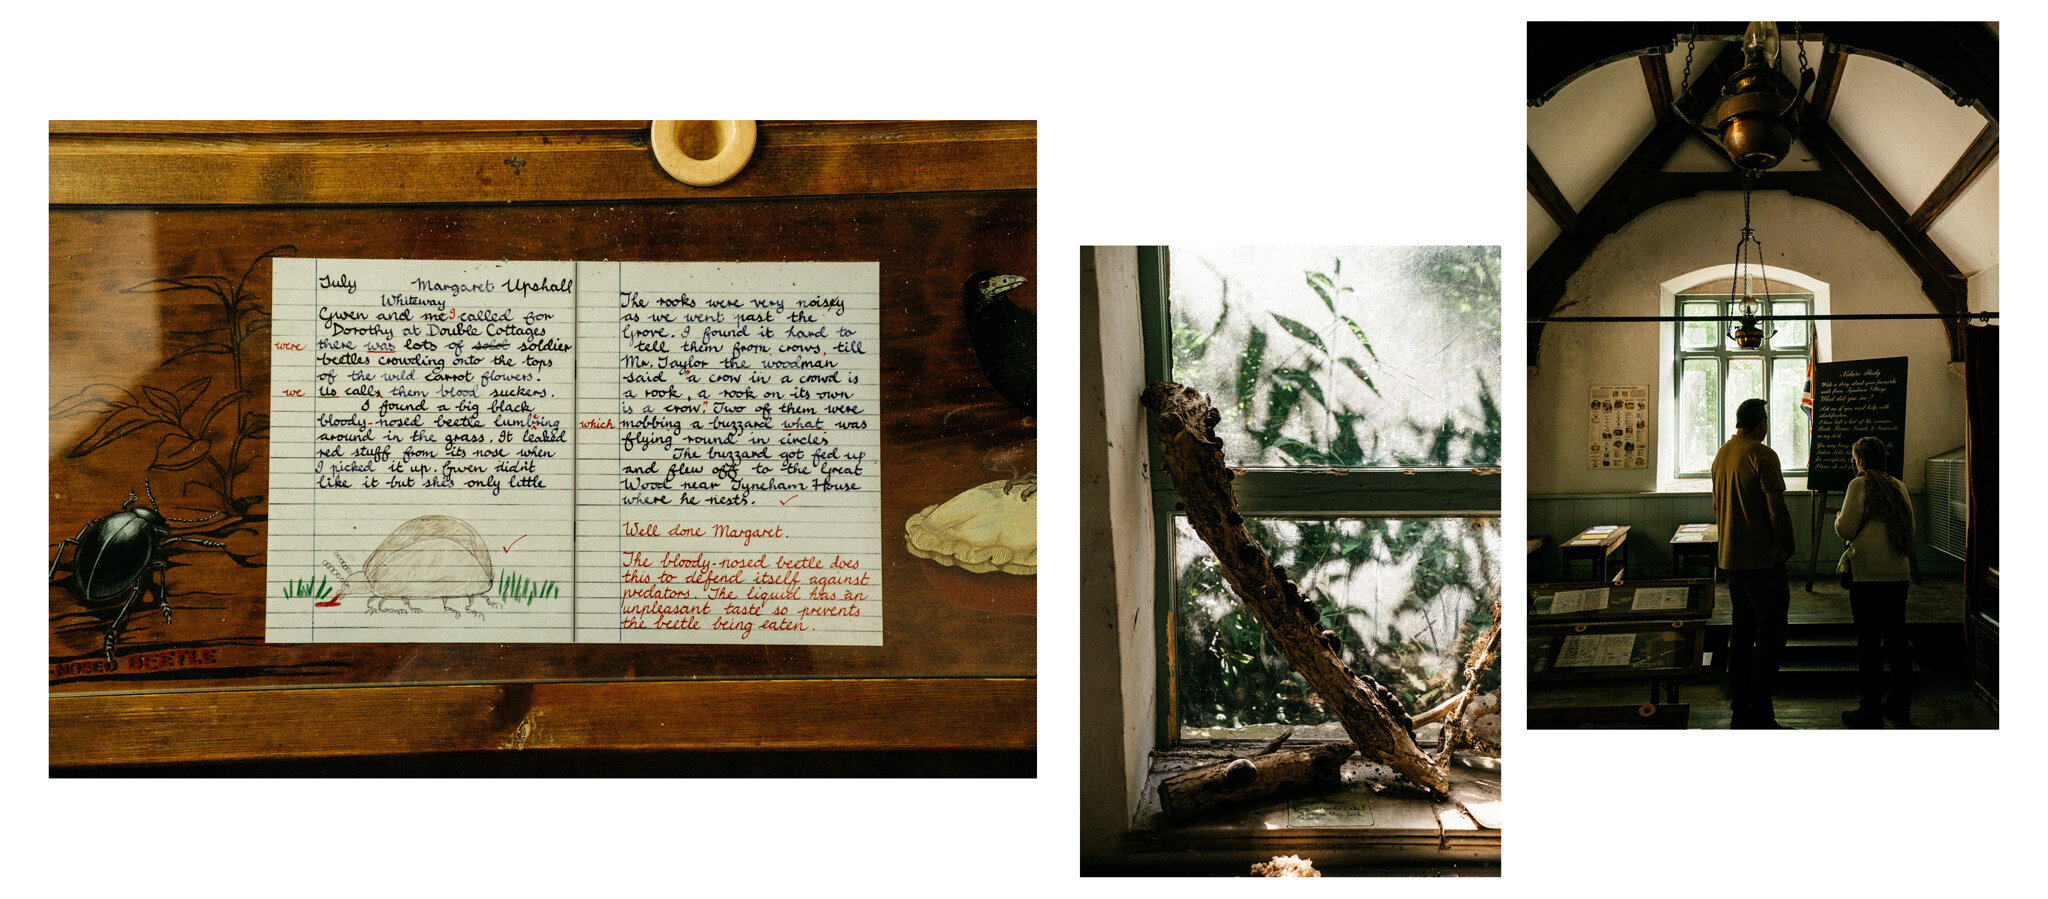 July Margaret Upshall
Whiteway
Gwen and me I called for
Dorothy at Double Cottages
were there was lots of sold soldier
beetles crowding onto the tops
of the wild carrot flowers.
we Us calls them blood suckers.
I found a big black
bloody-nosed beetle lumbring
around in the grass. It leaked
red stuff from its nose when
I picked it up. Gwen didn't
like it but she's only little
The rooks were very noisey
as we went past the
Grove. I found it hard to
tell them from crows, till
Mr. Taylor the woodman
said "a crow in a crowd is
a rook, a rook on its own
is a crow". Two of them were
which mobbing a buzzard what was
flying round in circles
The buzzard got fed up
and flew off to the Great
Wood near Tyneham House
where he nests.
Well done Margaret.
The bloody-nosed beetle does
this to defend itself against
predators. The liquid has an
unpleasant taste so prevents
the beetle being eaten.
-NOSED BEETLE
Nature Study
Write a story about your favourite
walk from Tyneham Village
What did you see?
Ask me if you need help with
identification
I have left a list of the common
Birds Flowers, Insects &
on my desk